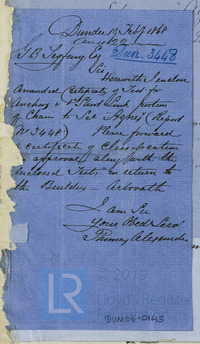 Dundee 19 Feby 1868
Dun. 3448
G B Seyfang Esq
Sir
Herewith I enclose
Amended Certificate of Test for
Anchors & Short Link portion
of Chain to Sch "Agnes" (Report
No 3448) Please forward
Certificate of Classification
if approved along with the
enclosed Tests in return to
the Builders - Arbroath
I am Sir
Your Obed Serv
Alexander
2019
LR
Lloyd's Register
DUN06-0143